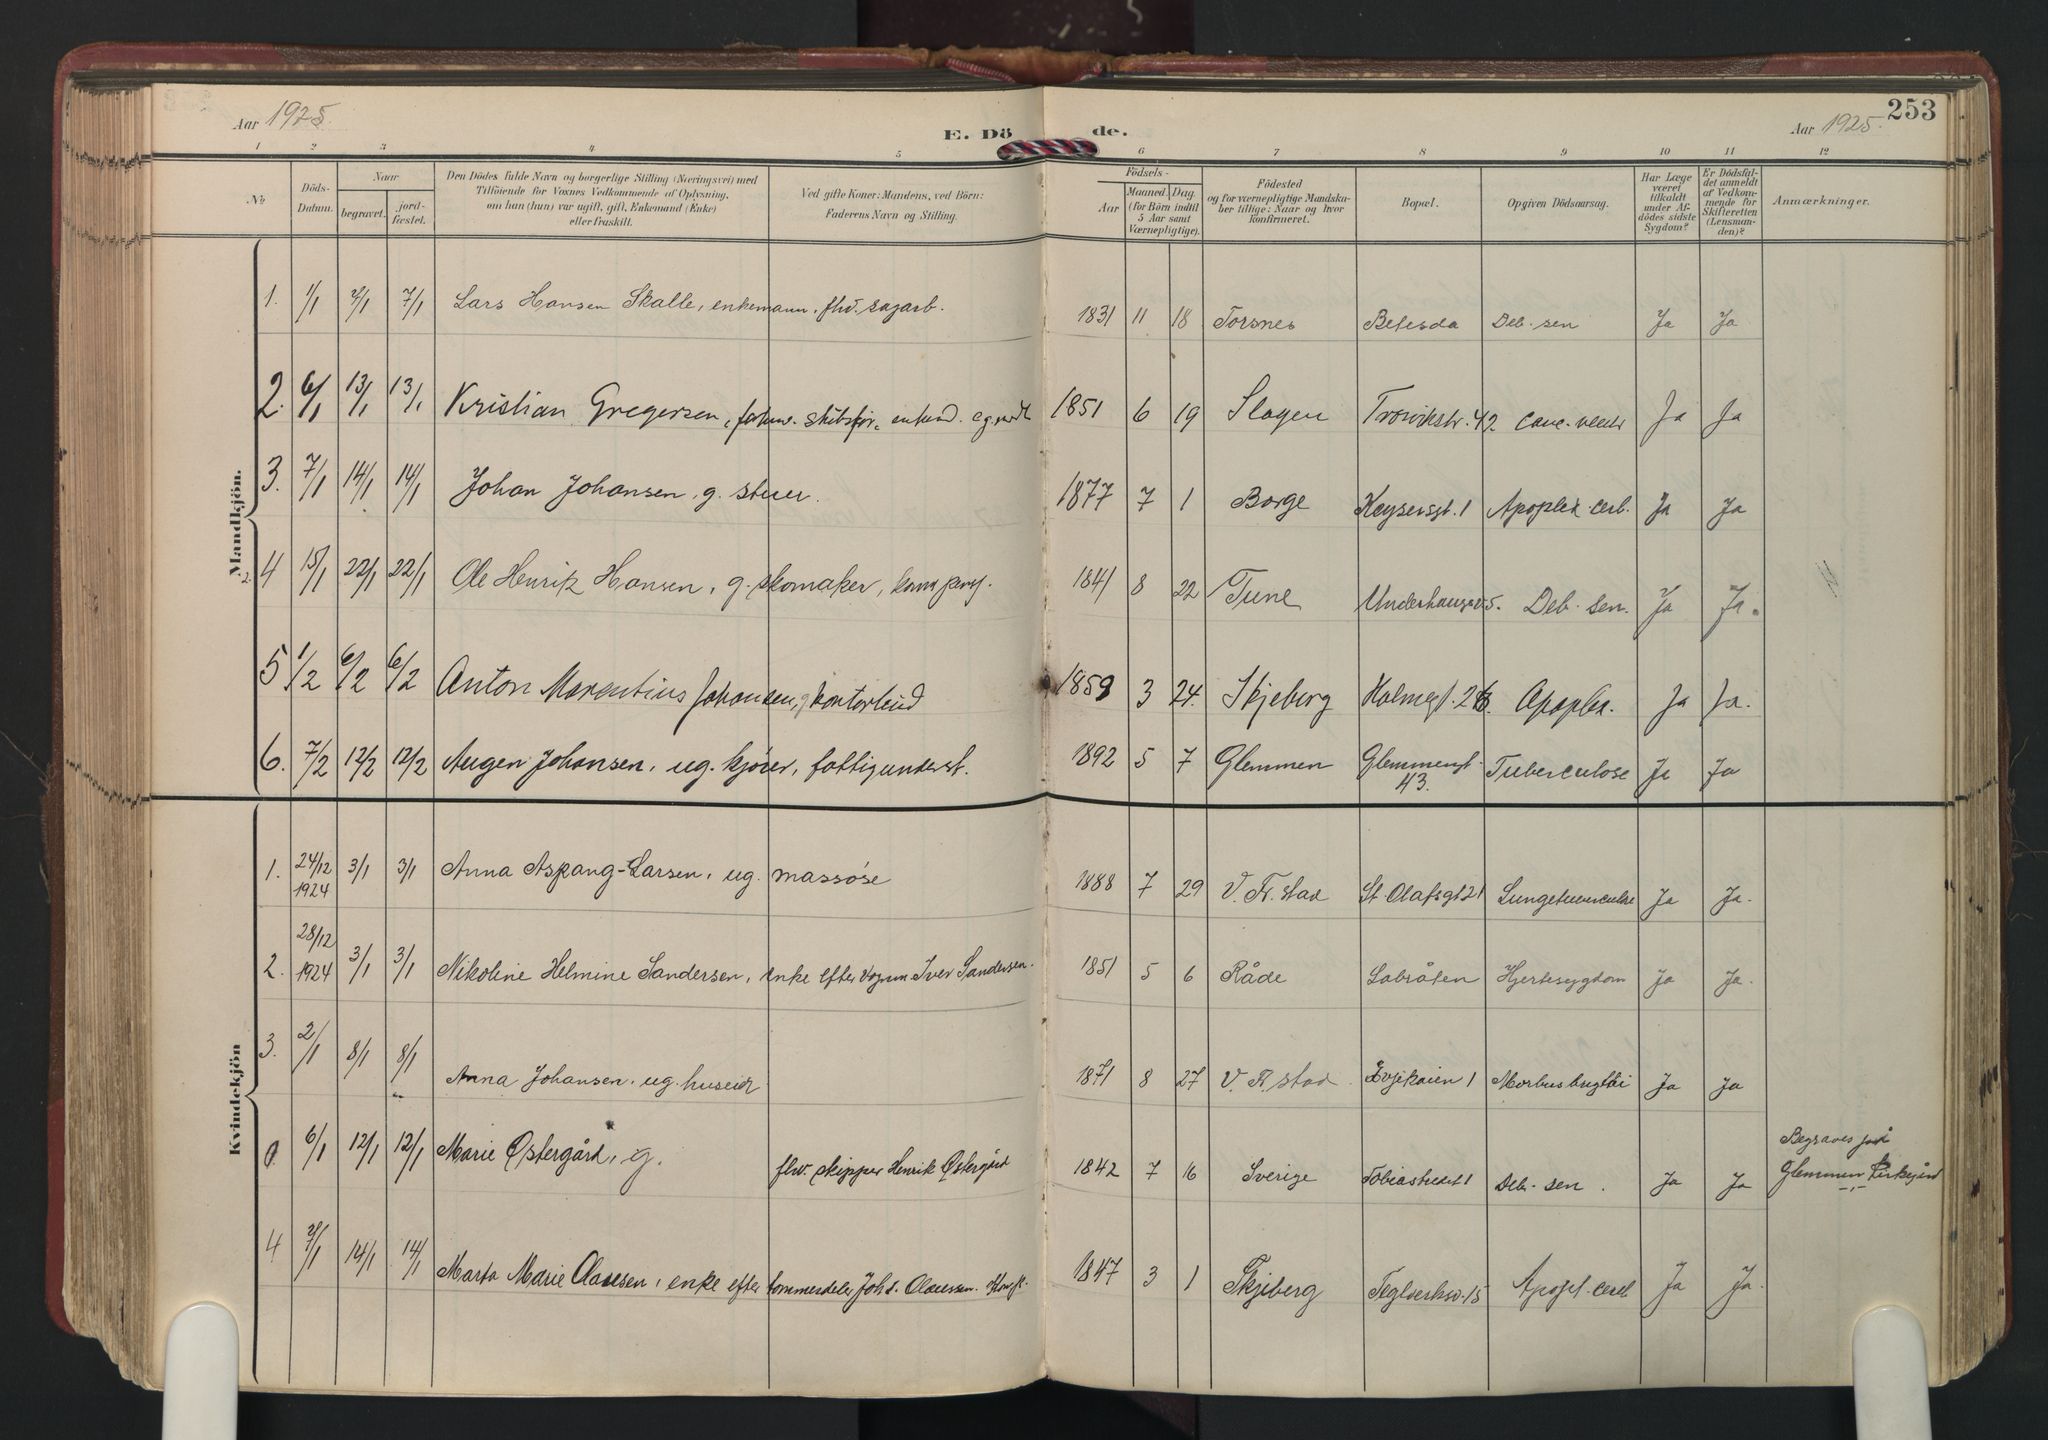 253
Aar 1925.
E. Dö de.
Aar 1925.
1 2 3 4 5 6 7 8 9 10 11 12
No
Döds-Datum.
Naar
begravet.
jord-fæstet.
Den Dödes fulde Navn og borgerlige Stilling (Næringsvei) med
Tilföiende for Voxnes Vedkommende af Oplysning,
om han (hun) var ugift, gift, Enkemand (Enke)
eller fraskilt.
Ved gifte Koner: Mandens, ved Börn:
Faderens Navn og Stilling.
Födsels-
Aar
Maaned Dag.
(for Börn indtil
5 Aar samt
Værnepligtige).
Födested
og for værnepligtige Mandska-
ber tillige: Naar og hvor
konfirmeret.
Bopæl.
Opgiven Dödsaarsag.
Har Læge
været
tilkaldt
under Af-
dödes sidste
Sygdom?
Er Dödsfal-
det anmeldt
af Vedkom-
mende for
Skifteretten
(Lensman-
den)?
Anmærkninger.
Mandkjön.
1. 1/1 7/1 7/1 Lars Hansen Skalle, enkemann, fhv. sagarb. 1831 11 18 Torsnes Betesda Deb. sen Ja Ja
2. 6/1 13/1 13/1 Kristian Gregersen, forhv. skibsfør, enkem. 1851 6 19 Slagen Trosvikstr. 42 canc. ventr Ja Ja
3. 7/1 14/1 14/1 Johan Johansen, g. stuer. 1877 7 1 Borge Keysersgt. 1 Apoplex. cerb. Ja Ja
4 15/1 22/1 22/1 Ole Henrik Hansen, g. skomaker, 1841 8 22 Tune Deb. sen. Ja Ja.
5 1/2 6/2 6/2 Anton Marentius Johansen, g kontorbud 1859 3 24. Skjeberg Holmegt. Apoplex. Ja Ja.
6. 7/2 12/2 12/2 Augen Johansen, ug. kjører, fattigunderst. 1892 5 7 Glemmen Glemmengt. 43. Tuberculose Ja Ja
Kvindekjön
1. 24/12 1924 3/1 3/1 Anna Aspang-Larsen, ug. massøse 1888 7 29 V. Fr. stad St. Olafsgt 21 Lungetuberculose Ja Ja.
2. 28/12 1924 3/1 3/1 Nikoline Helmine Sandersen, enke efter vognm. Iver Sandersen. 1851 5 6 Råde Labråten Hjertesygdom Ja Ja.
3. 2/1 8/1 8/1 Anna Johansen, ug. huseier 1871 8 27 V. Fr. stad Morbus brightii Ja Ja
0. 6/1 12/1 12/1 Marie Østergård, g. fhv. skipper Henrik Østergård 1842 7 16 Sverige Tobiastredet 1 Deb. sen. Ja Ja Begraves på
Glemmen kirkegård
4 7/1 14/1 14/1 Marta Marie Olaussen, enke efter tømmerdeler Joh s. Olaussen. 1847 3 1 Skjeberg Teglverksv. 15 Apopl. cereb Ja Ja.